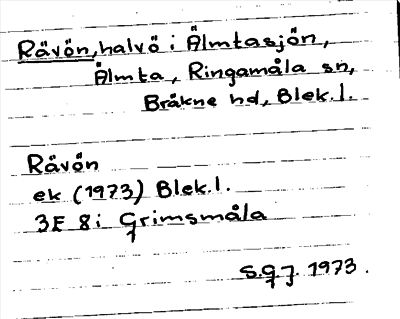 Rävön, halvö i Älmtasjön,
Älmta, Ringamåla sn,
Bräkne hd, Blek.l.
Rävön
ek (1973) Blek.l.
3F 8i Grimsmåla
S.G.J. 1973.